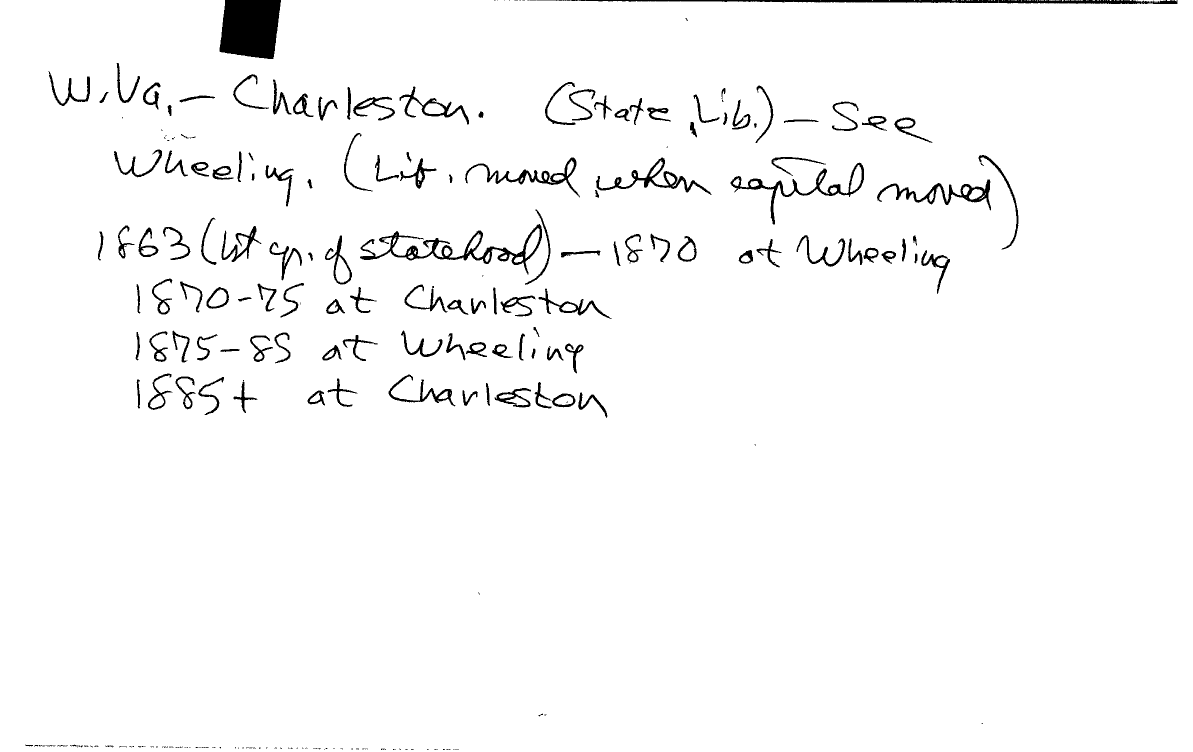 W.Va. – Charleston. (State Lib.) – See
Wheeling. (Lib. moved when capital moved)
1863 (1st yr. of statehood) – 1870 at Wheeling
1870-75 at Charleston
1875-85 at Wheeling
1885+ at Charleston